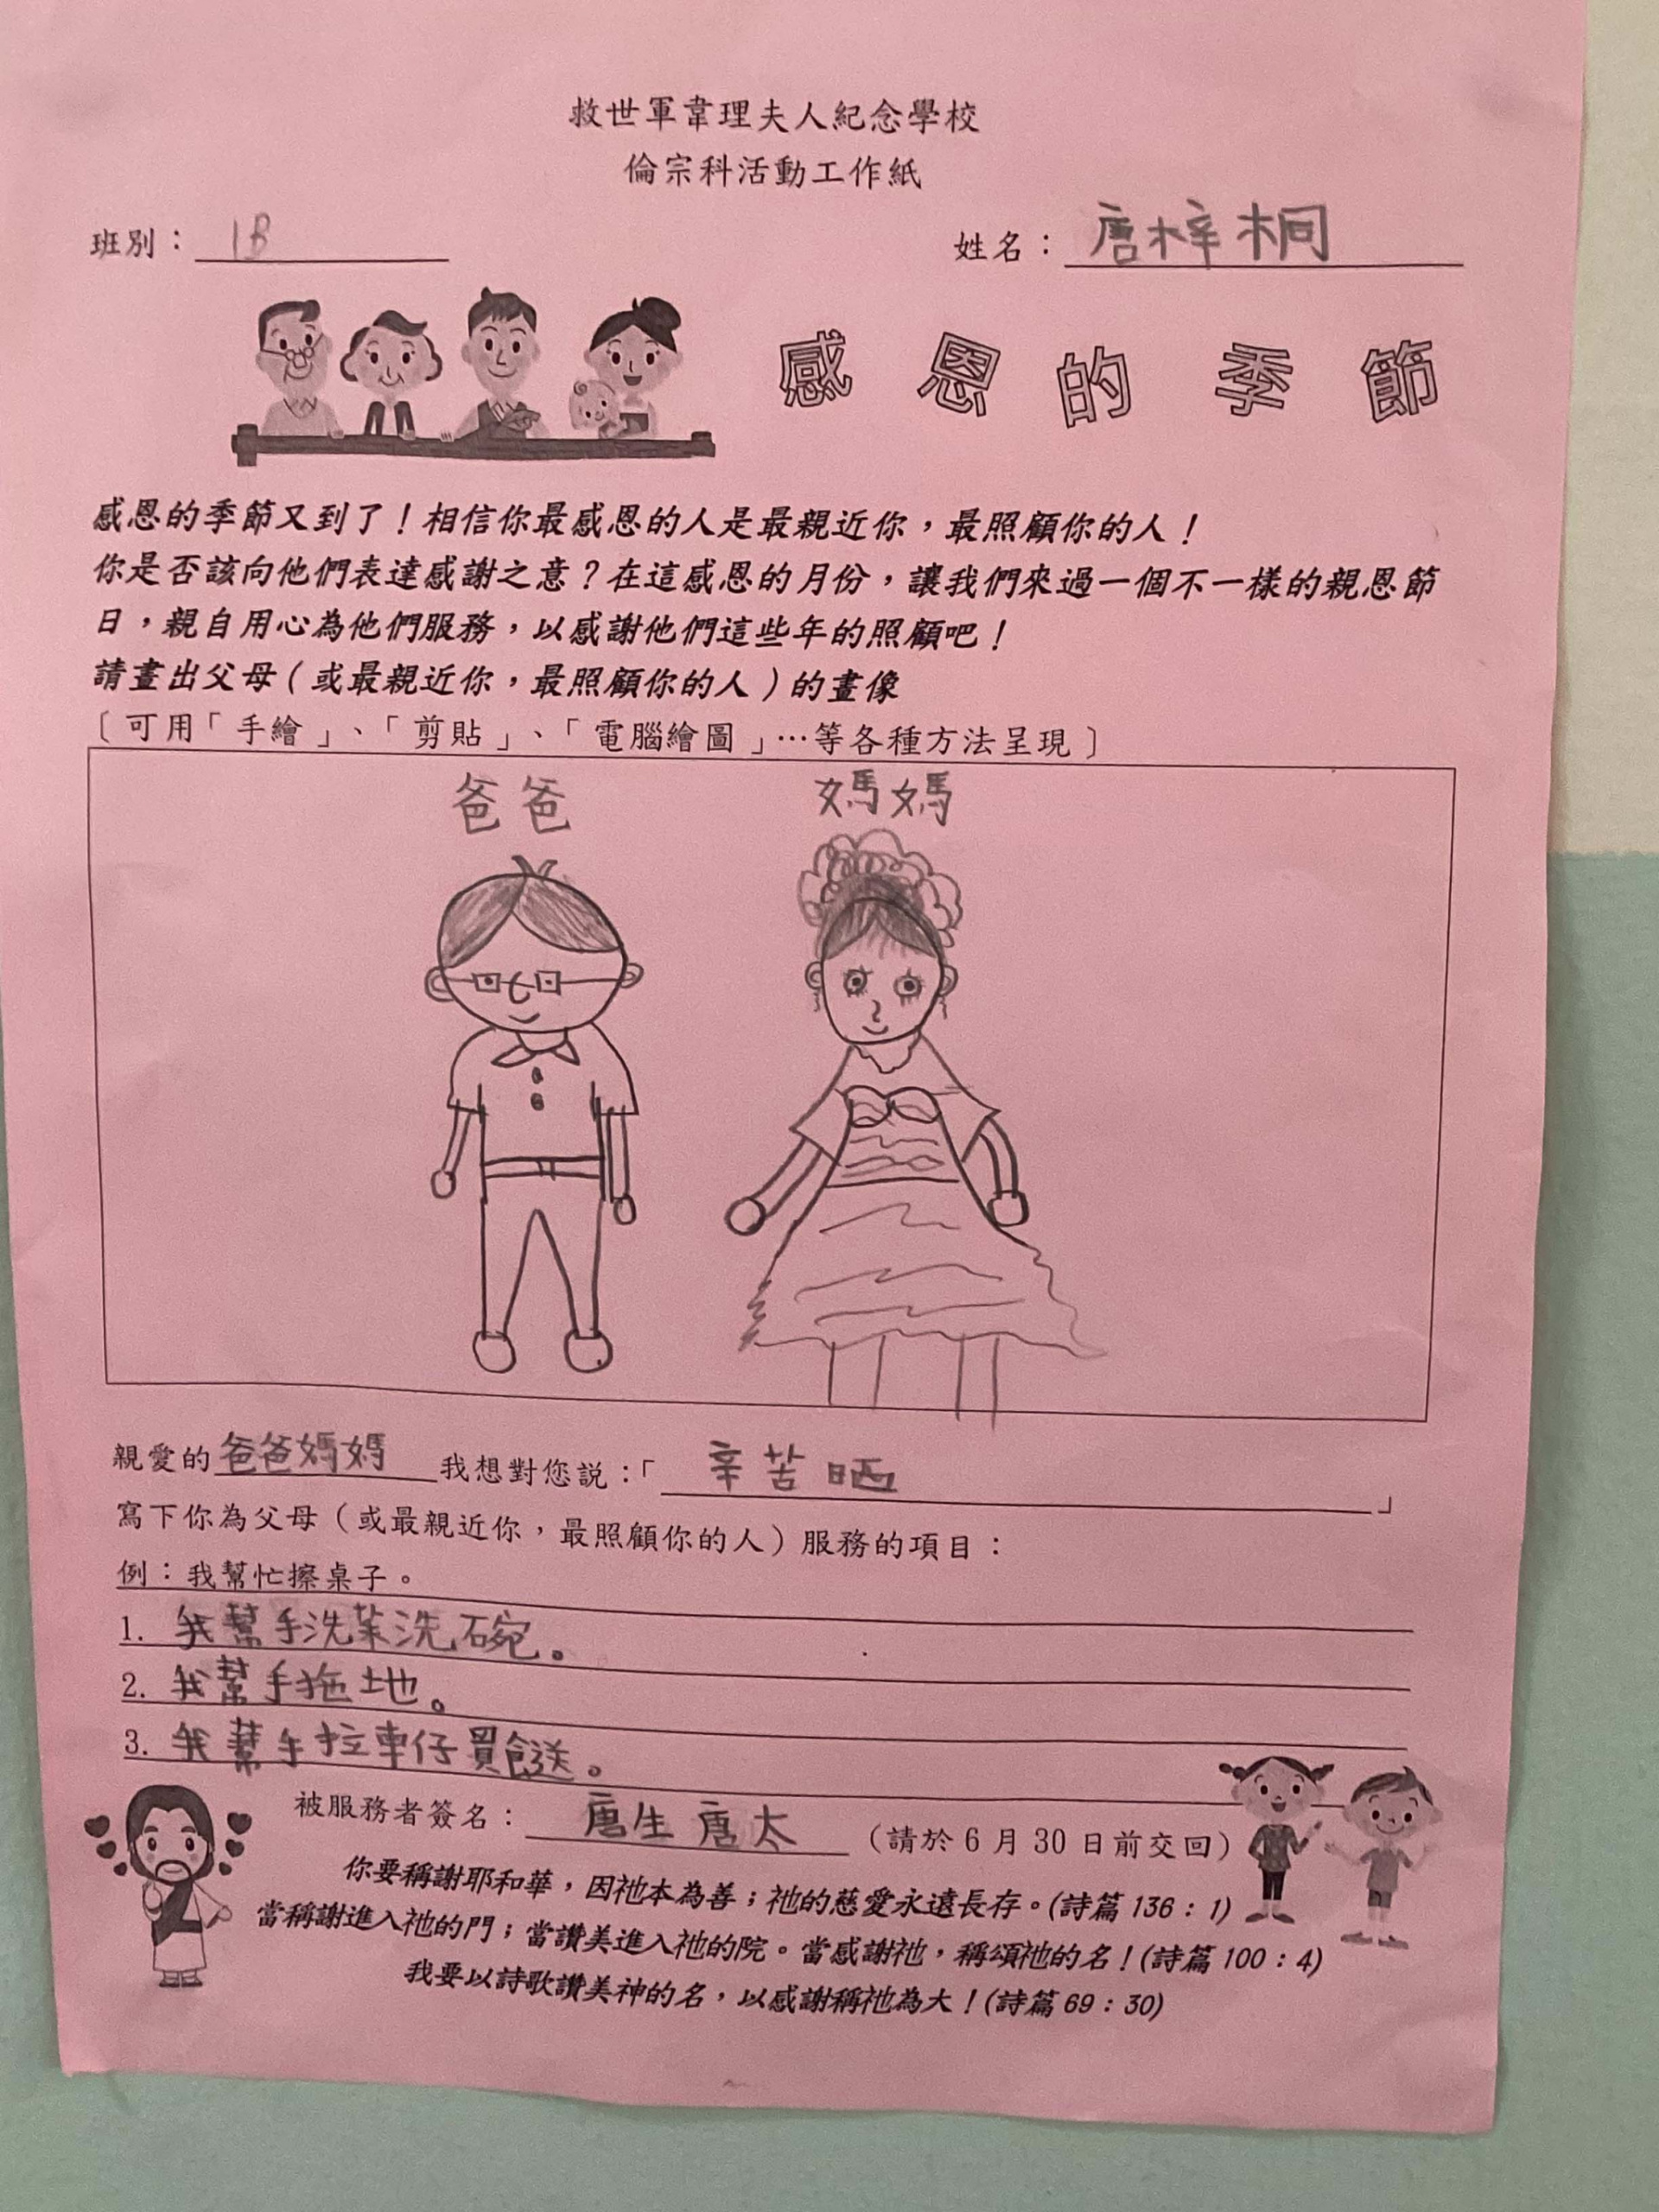 救世軍韋理夫人紀念學校
倫宗科活動工作紙
班別：1B 姓名：唐梓桐
感恩的季節
感恩的季節又到了！相信你最感恩的人是最親近你，最照顧你的人！
你是否該向他們表達感謝之意？在這感恩的月份，讓我們來過一個不一樣的親恩節
日，親自用心為他們服務，以感謝他們這些年的照顧吧！
請畫出父母（或最親近你，最照顧你的人）的畫像
〔可用「手繪」、「剪貼」、「電腦繪圖」…等各種方法呈現〕
爸爸 媽媽
親愛的爸爸媽媽我想對您說：「辛苦晒」
寫下你為父母（或最親近你，最照顧你的人）服務的項目：
例：我幫忙擦桌子。
1. 我幫手洗菜洗碗。
2. 我幫手拖地。
3. 我幫手拉車仔買餸。
被服務者簽名：唐生唐太（請於6月30日前交回）
你要稱謝耶和華，因祂本為善；祂的慈愛永遠長存。(詩篇136：1)
當稱謝進入祂的門；當讚美進入祂的院。當感謝祂，稱頌祂的名！(詩篇100：4)
我要以詩歌讚美神的名，以感謝稱祂為大！(詩篇69：30)